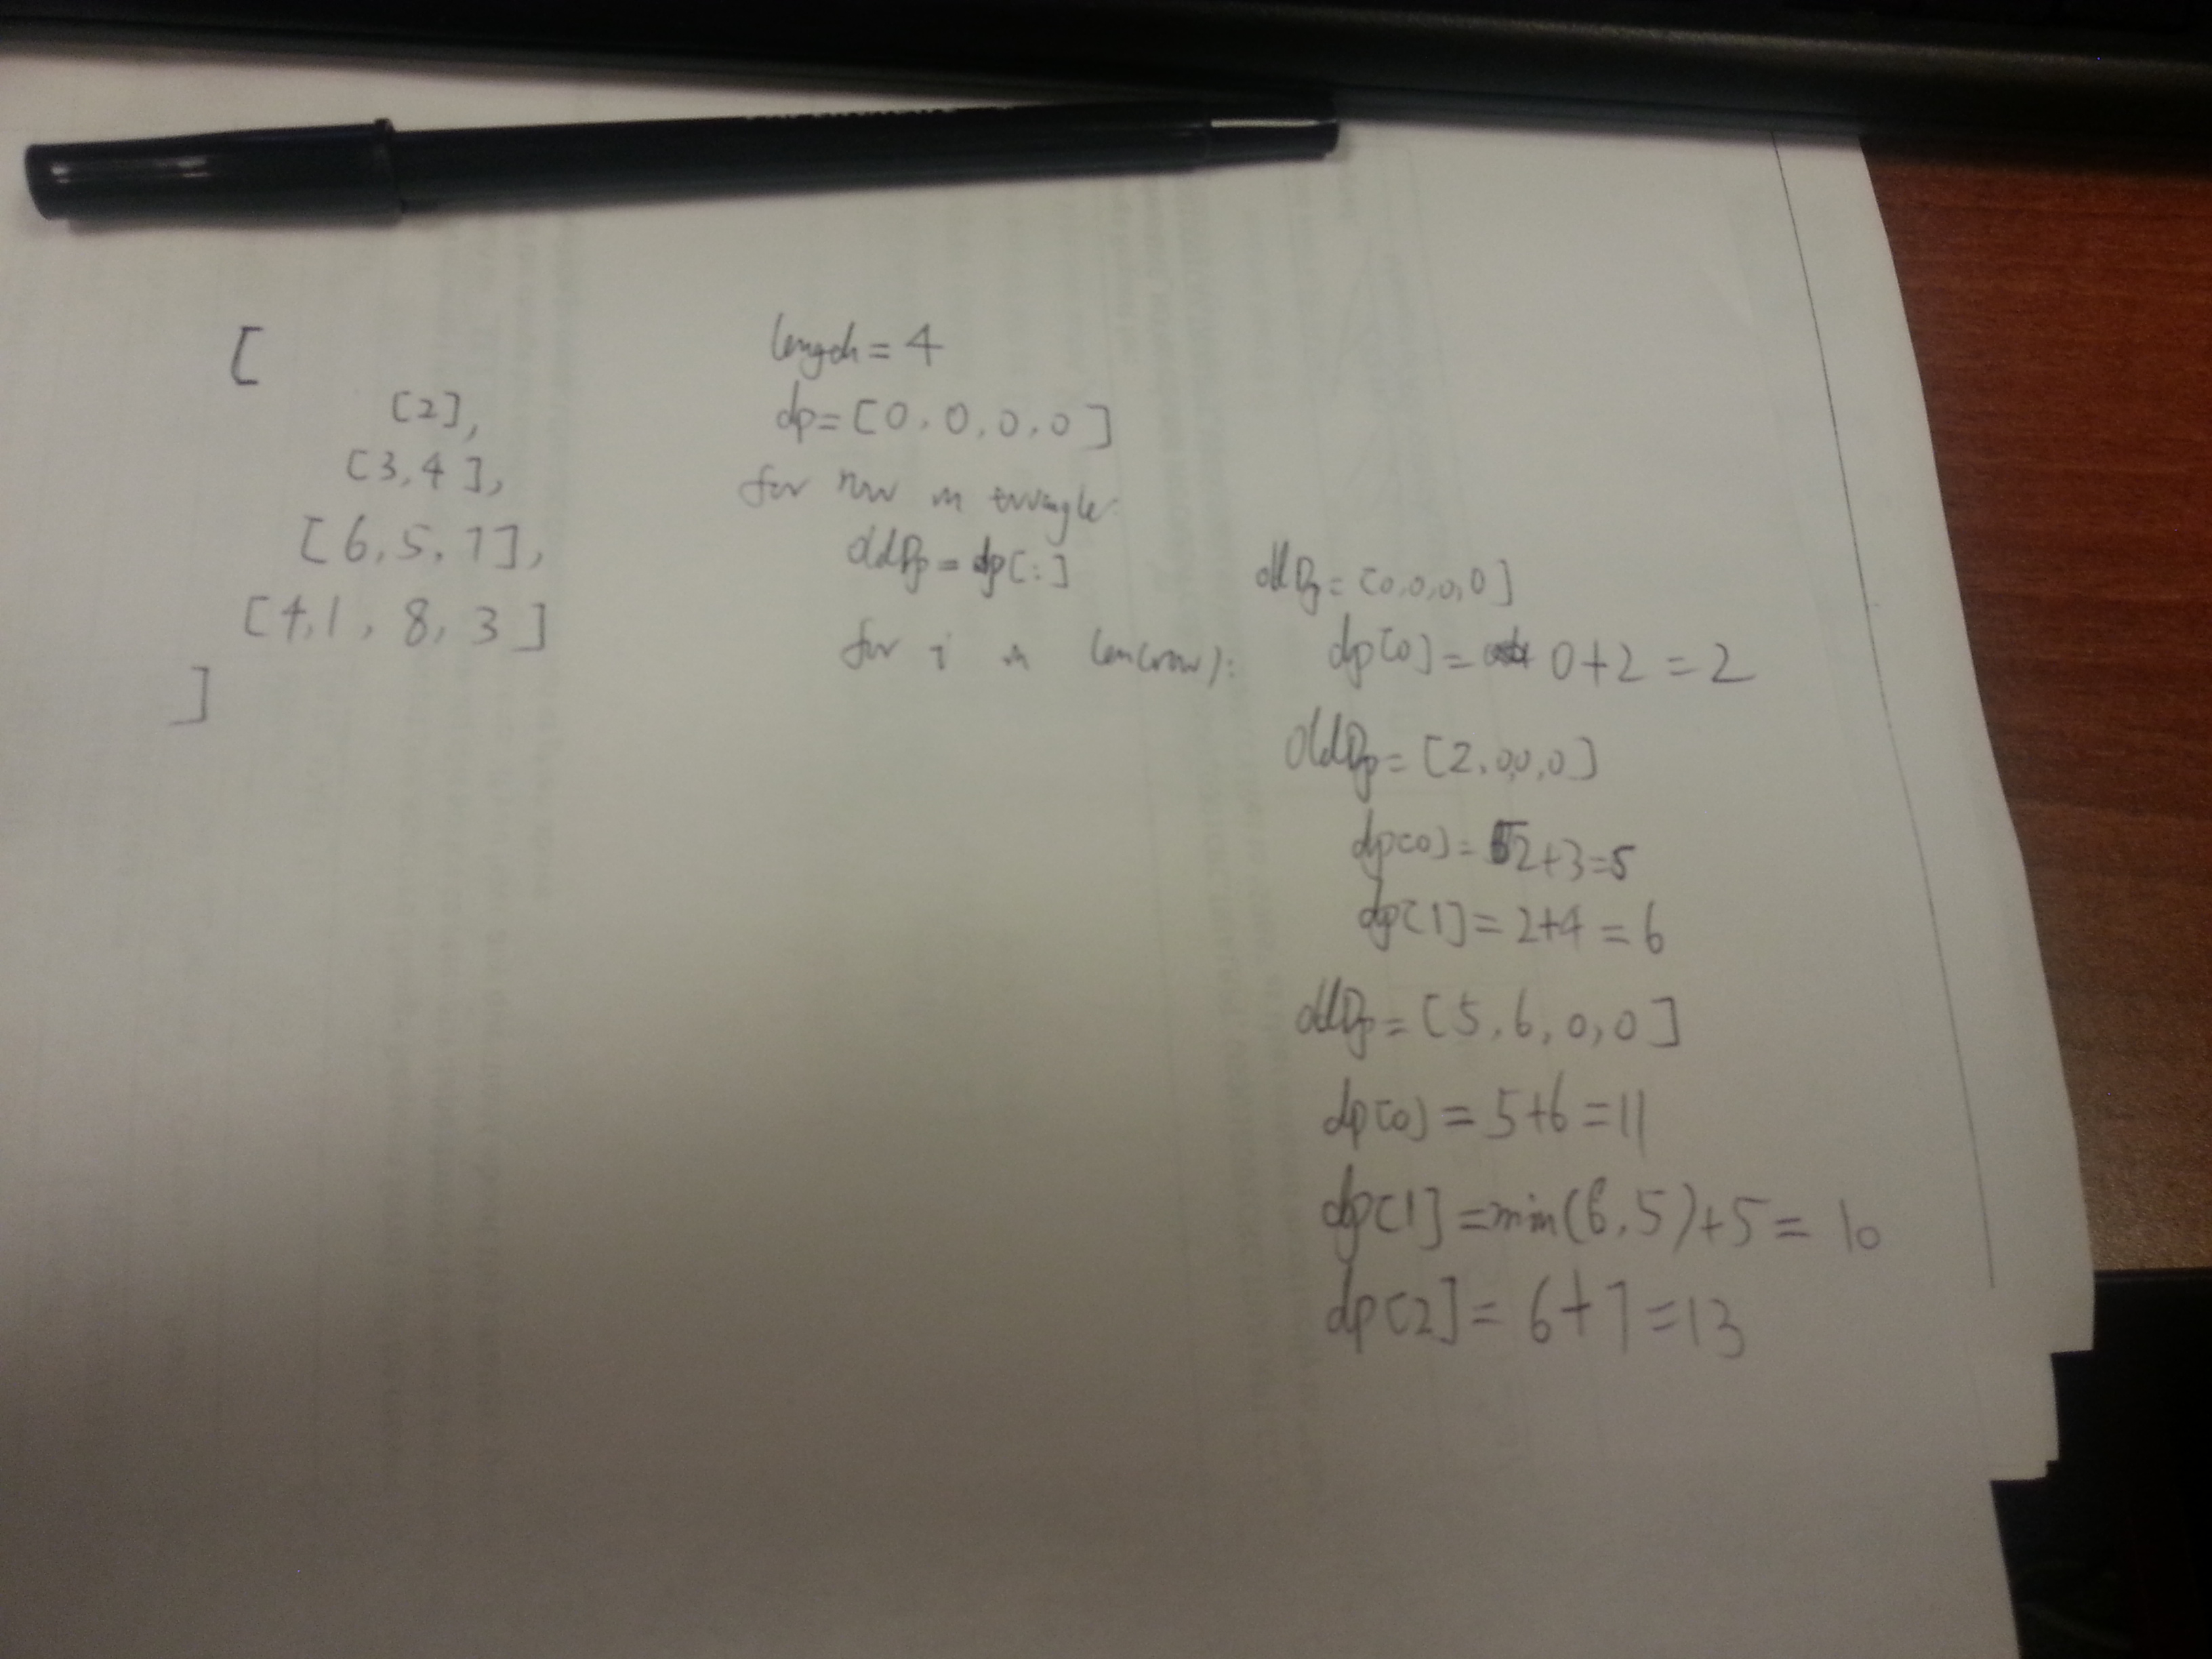 [
[2],
[3,4],
[6,5,7],
[4,1,8,3]
]
length=4
dp=[0,0,0,0]
for row in triangle
oldDp=dp[:]
for i in len(row):
oldDp=[0,0,0,0]
dp[0]=0+2=2
oldDp=[2,0,0,0]
dp[0]=2+3=5
dp[1]=2+4=6
oldDp=[5,6,0,0]
dp[0]=5+6=11
dp[1]=min(6,5)+5=10
dp[2]=6+7=13